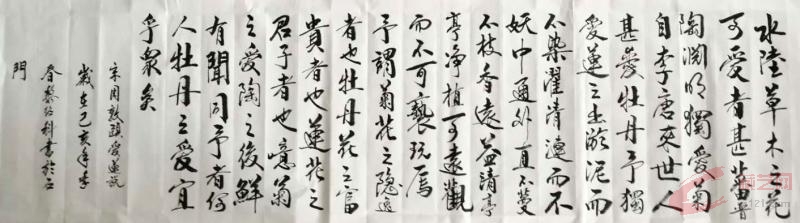 水陸草木之花
可愛者甚蕃晋
陶渊明獨愛菊
自李唐来世人
甚愛牡丹予獨
愛蓮之出淤泥而
不染濯清漣而不
妖中通外直不蔓
不枝香遠益清亭
亭净植可遠觀
而不可褻玩焉
予謂菊花之隐逸
者也牡丹花之富
貴者也蓮花之
君子者也噫菊
之愛陶之後鮮
有聞同予者何
人牡丹之愛宜
乎衆矣
宋周敦頤愛蓮説
歲在己亥年季
春黎科書於石
門